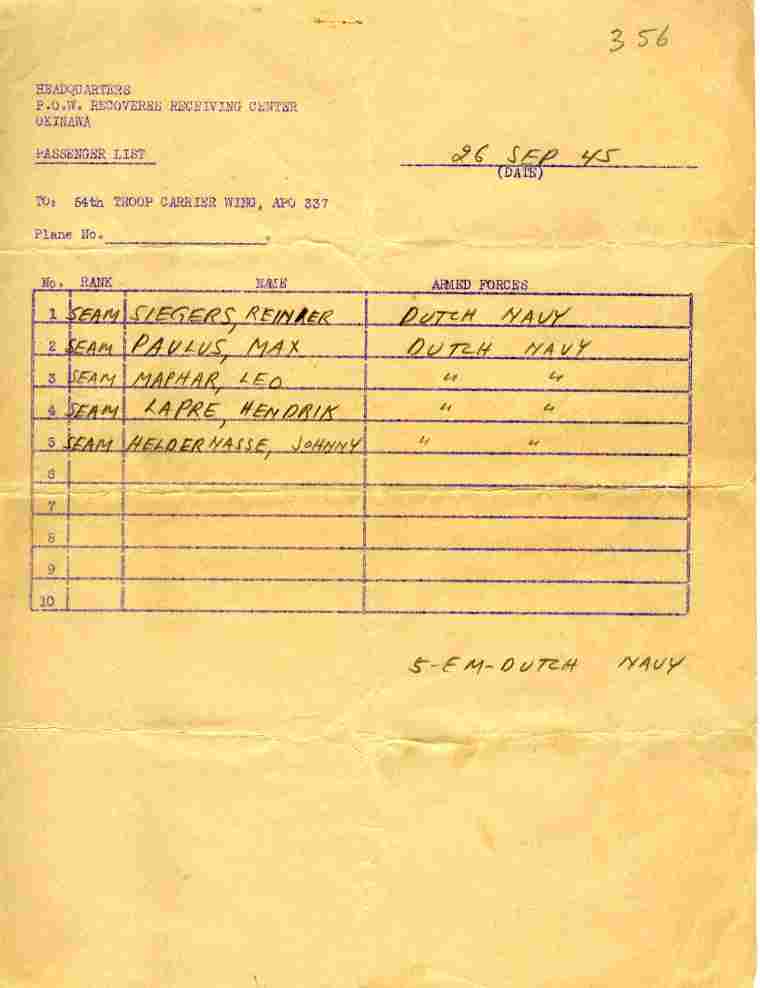 356
HEADQUARTERS
P.O.W. RECOVEREE RECEIVING CENTER
OKINAWA
PASSENGER LIST
26 SEP 45
(DATE)
TO: 54th TROOP CARRIER WING, APO 337
Plane No.
No. RANK NAME ARMED FORCES
1 SEAM SIEGERS, REINDER DUTCH NAVY
2 SEAM PAULUS, MAX DUTCH NAVY
3 SEAM MAPHAR, LEO " "
4 SEAM LAPRE, HENDRIK " "
5 SEAM HELDERNASSE, JOHNNY " "
6
7
8
9
10
5-EM-DUTCH NAVY